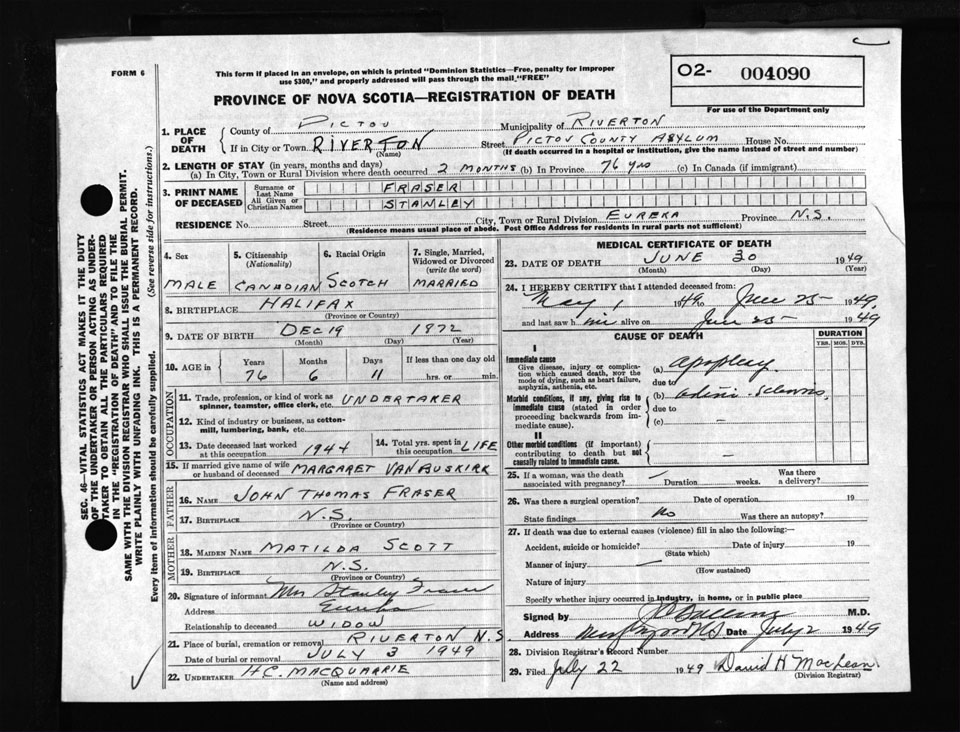 FORM 6
This form if placed in an envelope, on which is printed "Dominion Statistics—Free, penalty for improper
use $300," and properly addressed will pass through the mail "FREE"
O2- 004090
For use of the Department only
PROVINCE OF NOVA SCOTIA—REGISTRATION OF DEATH
1. PLACE OF DEATH
County of PICTOU Municipality of RIVERTON
If in City or Town RIVERTON Street PICTOU COUNTY ASYLUM House No.
(Name) (If death occurred in a hospital or institution, give the name instead of street and number)
2. LENGTH OF STAY (in years, months and days)
(a) In City, Town or Rural Division where death occurred 2 MONTHS (b) In Province 76 yrs (c) In Canada (if immigrant)
3. PRINT NAME OF DECEASED
Surname or Last Name FRASER
All Given or Christian Names STANLEY
RESIDENCE No. Street City, Town or Rural Division EUREKA Province N.S.
(Residence means usual place of abode. Post Office Address for residents in rural parts not sufficient)
4. Sex MALE
5. Citizenship (Nationality) CANADIAN
6. Racial Origin SCOTCH
7. Single, Married, Widowed or Divorced (write the word) MARRIED
8. BIRTHPLACE HALIFAX
(Province or Country)
9. DATE OF BIRTH DEC 19 1872
(Month) (Day) (Year)
10. AGE in Years 76 Months 6 Days 11 If less than one day old hrs. or min.
OCCUPATION
11. Trade, profession, or kind of work as spinner, teamster, office clerk, etc. UNDERTAKER
12. Kind of industry or business, as cotton-mill, lumbering, bank, etc.
13. Date deceased last worked at this occupation 1944
14. Total yrs. spent in this occupation LIFE
15. If married give name of wife or husband of deceased MARGARET VANBUSKIRK
FATHER
16. NAME JOHN THOMAS FRASER
17. BIRTHPLACE N.S.
(Province or Country)
MOTHER
18. MAIDEN NAME MATILDA SCOTT
19. BIRTHPLACE N.S.
(Province or Country)
20. Signature of informant Mrs Stanley Fraser
Address Eureka
Relationship to deceased WIDOW
21. Place of burial, cremation or removal RIVERTON N.S.
Date of burial or removal JULY 3 1949
22. UNDERTAKER H.C. MACQUARRIE
(Name and address)
MEDICAL CERTIFICATE OF DEATH
23. DATE OF DEATH JUNE 30 1949
(Month) (Day) (Year)
24. I HEREBY CERTIFY that I attended deceased from:
May 1 1949 to June 25 1949
and last saw him alive on June 25 1949
CAUSE OF DEATH
DURATION
YRS. MOS. DYS.
I
Immediate cause
Give disease, injury or complication which caused death, NOT the mode of dying, such as heart failure, asphyxia, asthenia, etc.
(a) Apoplexy
due to
Morbid conditions, if any, giving rise to immediate cause (stated in order proceeding backwards from immediate cause).
(b)
due to
(c) —
II
Other morbid conditions (if important) contributing to death but not causally related to immediate cause. —
25. If a woman, was the death associated with pregnancy? — Duration weeks. Was there a delivery?
26. Was there a surgical operation? Date of operation 19
State findings No Was there an autopsy?
27. If death was due to external causes (violence) fill in also the following:—
Accident, suicide or homicide? Date of injury 19
(State which)
Manner of injury —
(How sustained)
Nature of injury
Specify whether injury occurred in industry, in home, or in public place
Signed by M.D.
Address Date July 2 1949
28. Division Registrar's Record Number
29. Filed July 22 1949 David H MacLean
(Division Registrar)
SEC. 46—VITAL STATISTICS ACT MAKES IT THE DUTY
OF THE UNDERTAKER OR PERSON ACTING AS UNDER-
TAKER TO OBTAIN ALL THE PARTICULARS REQUIRED
IN THE "REGISTRATION OF DEATH" AND TO FILE THE
SAME WITH THE DIVISION REGISTRAR WHO SHALL ISSUE THE BURIAL PERMIT.
WRITE PLAINLY WITH UNFADING INK. THIS IS A PERMANENT RECORD.
Every item of information should be carefully supplied. (See reverse side for instructions.)